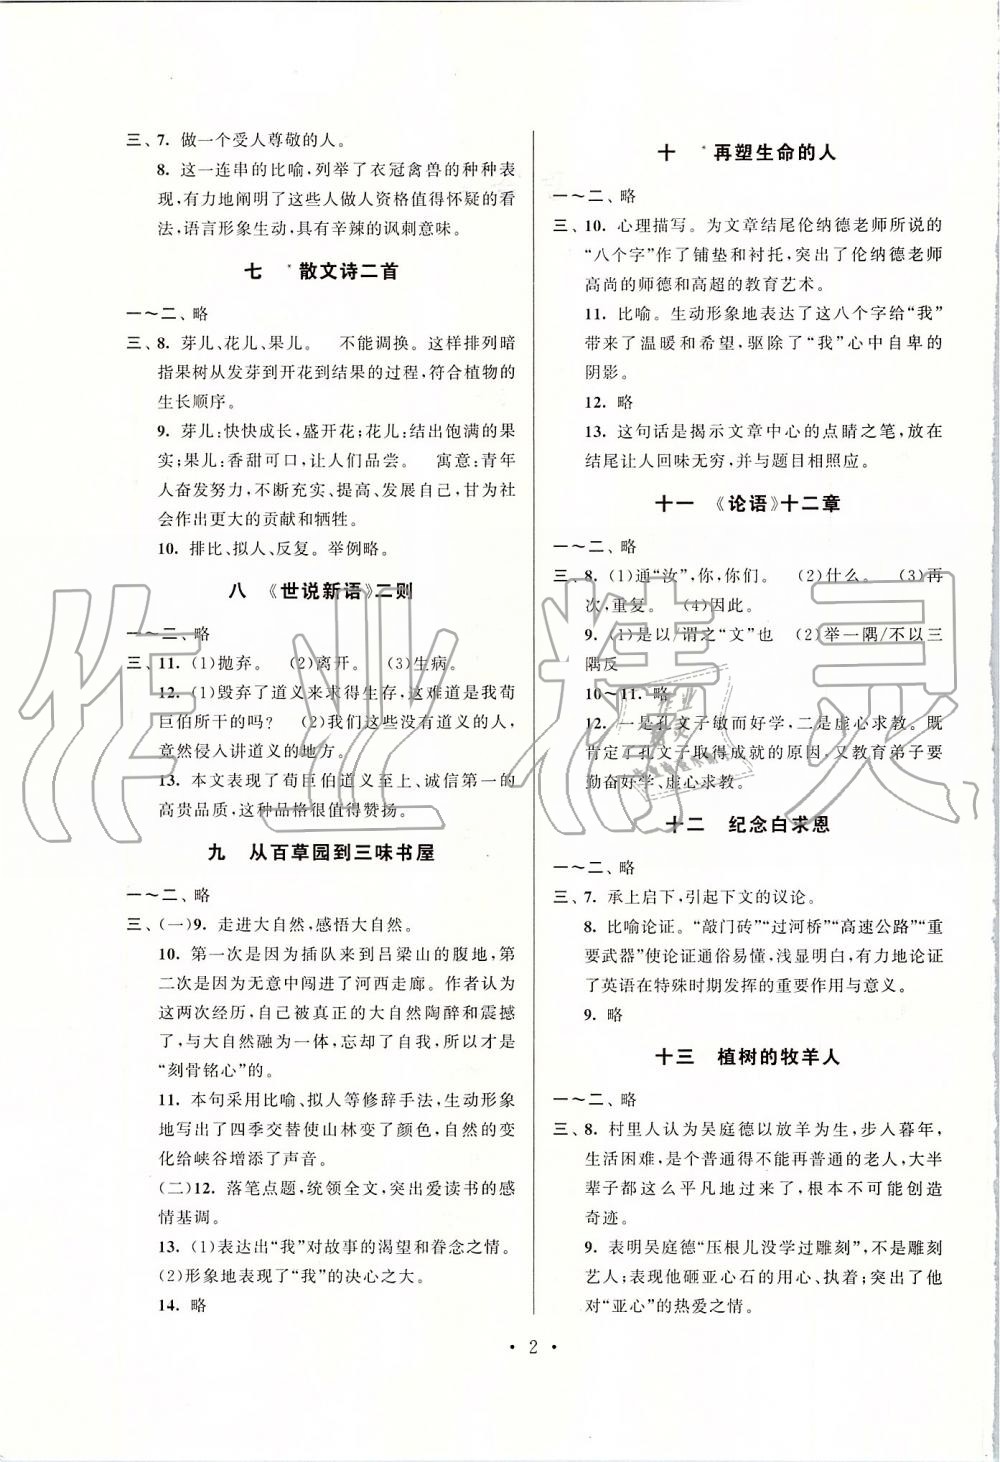 三、7. 做一个受人尊敬的人。
8. 这一连串的比喻,列举了衣冠禽兽的种种表
现,有力地阐明了这些人做人资格值得怀疑的看
法,语言形象生动,具有辛辣的讽刺意味。
七 *散文诗二首
一～二、略
三、8. 芽儿、花儿、果儿。 不能调换。这样排列暗
指果树从发芽到开花到结果的过程,符合植物的
生长顺序。
9. 芽儿:快快成长,盛开花;花儿:结出饱满的果
实;果儿:香甜可口,让人们品尝。 寓意:青年
人奋发努力,不断充实、提高、发展自己,甘为社
会作出更大的贡献和牺牲。
10. 排比、拟人、反复。举例略。
八 《世说新语》二则
一～二、略
三、11. (1)抛弃。 (2)离开。 (3)生病。
12. (1)毁弃了道义来求得生存,这难道是我荀
巨伯所干的吗? (2)我们这些没有道义的人,
竟然侵入讲道义的地方。
13. 本文表现了荀巨伯道义至上、诚信第一的
高贵品质,这种品格很值得赞扬。
九 从百草园到三味书屋
一～二、略
三、(一)9. 走进大自然,感悟大自然。
10. 第一次是因为插队来到吕梁山的腹地,第
二次是因为无意中闯进了河西走廊。作者认为
这两次经历,自己被真正的大自然陶醉和震撼
了,与大自然融为一体,忘却了自我,所以才是
“刻骨铭心”的。
11. 本句采用比喻、拟人等修辞手法,生动形象
地写出了四季交替使山林变了颜色,自然的变
化给峡谷增添了声音。
(二)12. 落笔点题,统领全文,突出爱读书的感
情基调。
13. (1)表达出“我”对故事的渴望和眷念之情。
(2)形象地表现了“我”的决心之大。
14. 略
十 *再塑生命的人
一～二、略
三、10. 心理描写。为文章结尾伦纳德老师所说的
“八个字”作了铺垫和衬托,突出了伦纳德老师
高尚的师德和高超的教育艺术。
11. 比喻。生动形象地表达了这八个字给“我”
带来了温暖和希望,驱除了“我”心中自卑的
阴影。
12. 略
13. 这句话是揭示文章中心的点睛之笔,放在
结尾让人回味无穷,并与题目相照应。
十一 《论语》十二章
一～二、略
三、8. (1)通“汝”,你,你们。 (2)什么。 (3)再
次,重复。 (4)因此。
9. (1)是以/谓之“文”也 (2)举一隅/不以三
隅反
10～11. 略
12. 一是孔文子敏而好学,二是虚心求教。既
肯定了孔文子取得成就的原因,又教育弟子要
勤奋好学、虚心求教。
十二 纪念白求恩
一～二、略
三、7. 承上启下,引起下文的议论。
8. 比喻论证。“敲门砖”“过河桥”“高速公路”“重
要武器”使论证通俗易懂,浅显明白,有力地论证
了英语在特殊时期发挥的重要作用与意义。
9. 略
十三 植树的牧羊人
一～二、略
三、8. 村里人认为吴庭德以放羊为生,步入暮年,
生活困难,是个普通得不能再普通的老人,大半
辈子都这么平凡地过来了,根本不可能创造
奇迹。
9. 表明吴庭德“压根儿没学过雕刻”,不是雕刻
艺人;表现他砸亚心石的用心、执着;突出了他
对“亚心”的热爱之情。
• 2 •
作业精灵